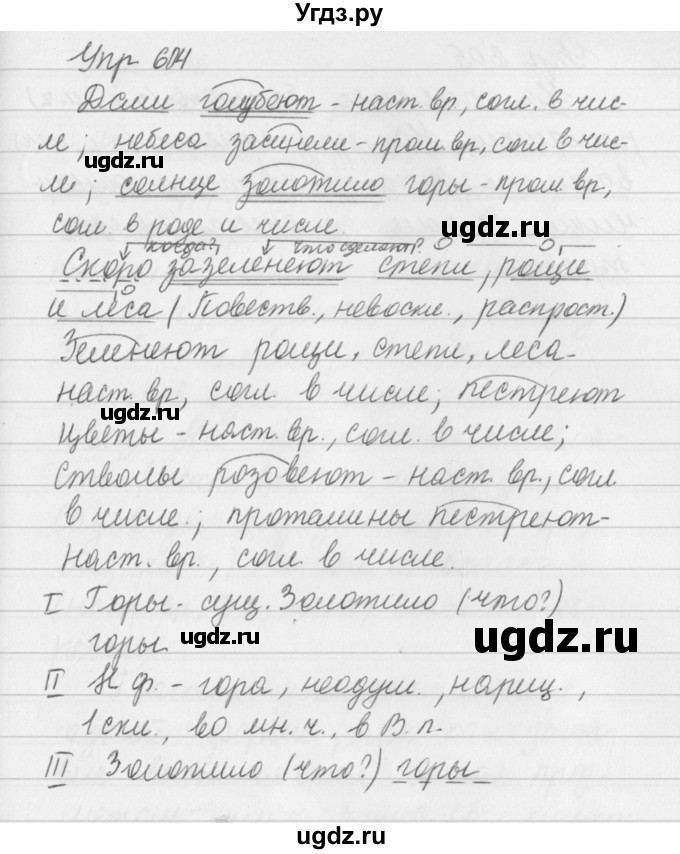 Угдз.ру
Упр 604
Дали голубеют - наст. вр, согл. в чис-
ле; небеса засинели - прош. вр, согл в чис-
ugdz.ru
ugdz.ru
ле; солнце золотило горы - прош. вр,
согл. в роде и числе.
ugdz.ru
когда? что сделают?
Скоро зазеленеют степи, рощи
и леса (Повеств., невоскл., распрост.)
Зеленеют рощи, степи, леса -
наст. вр, согл. в числе; пестреют
ugdz.ru
цветы - наст. вр., согл. в числе;
стволы розовеют - наст. вр., согл
в числе.; проталины пестреют -
наст. вр., согл. в числе.
I Горы - сущ. Золотило (что?)
горы.
ugdz.ru
ugdz.ru
II Н ф. - гора, неодуш., нариц.,
1 скл., во мн. ч., в В. п.
III Золотило (что?) горы
ugdz.ru
ugdz.ru
ugdz.ru